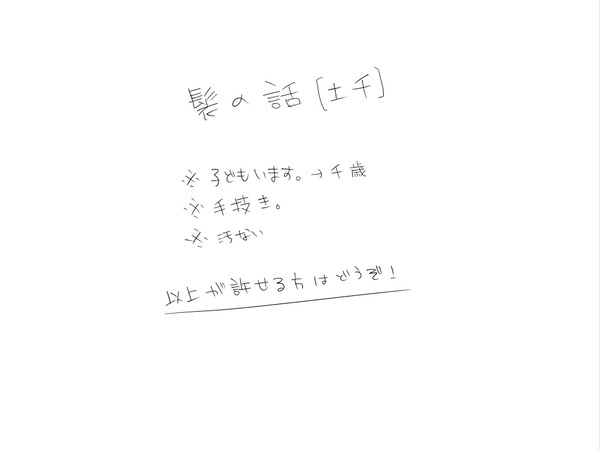 髪の話[土千]
※子どもいます。→千歳
※手抜き。
※汚ない
以上が許せる方はどうぞ!